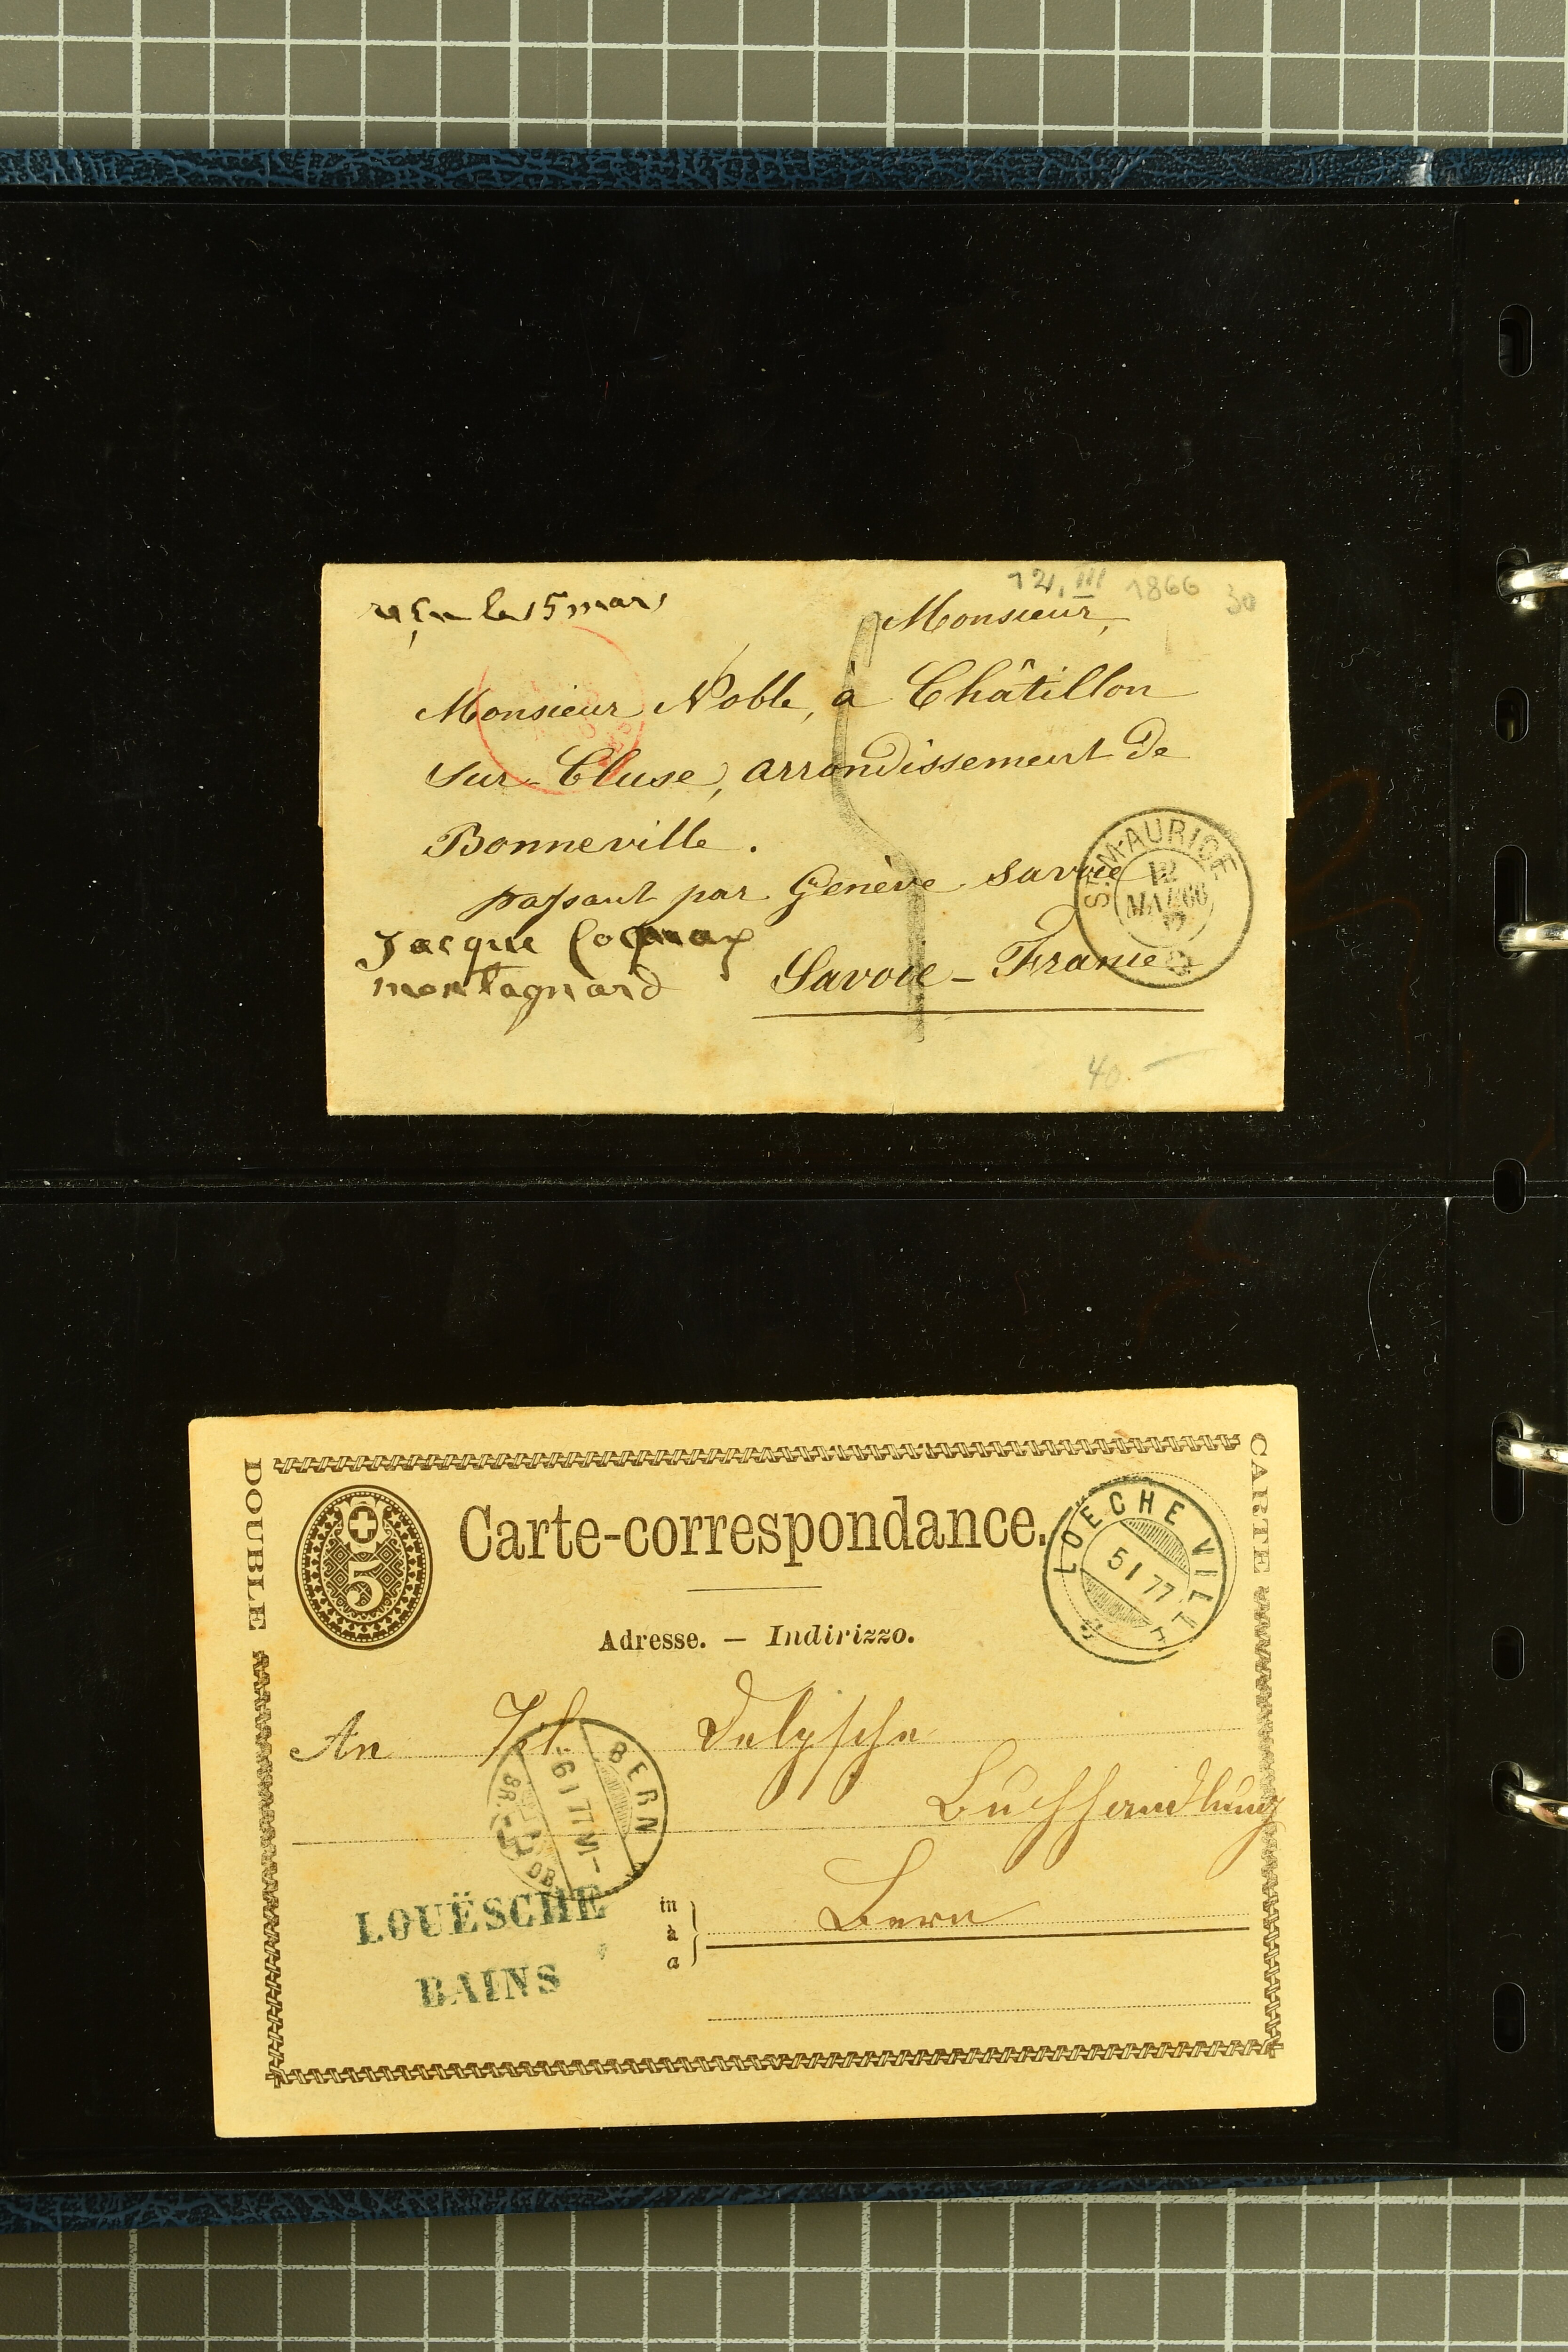 12. III 1866 30
le 15 mars
Monsieur,
Monsieur Noble, à Châtillon
Sur-Cluse, arrondissement de
Bonneville.
passant par Genève Savoie
Jacque
montagnard
Savoie - France
ST. MAURICE
12
MARS 66
40.-
DOUBLE
CARTE
5
Carte-correspondance.
LOECHE VILLE
5 I 77
Adresse. — Indirizzo.
An
Buchhandlung
BERN
6 I 77 VI-
BR.
Bern
LOUËSCHE
BAINS
in
à
a